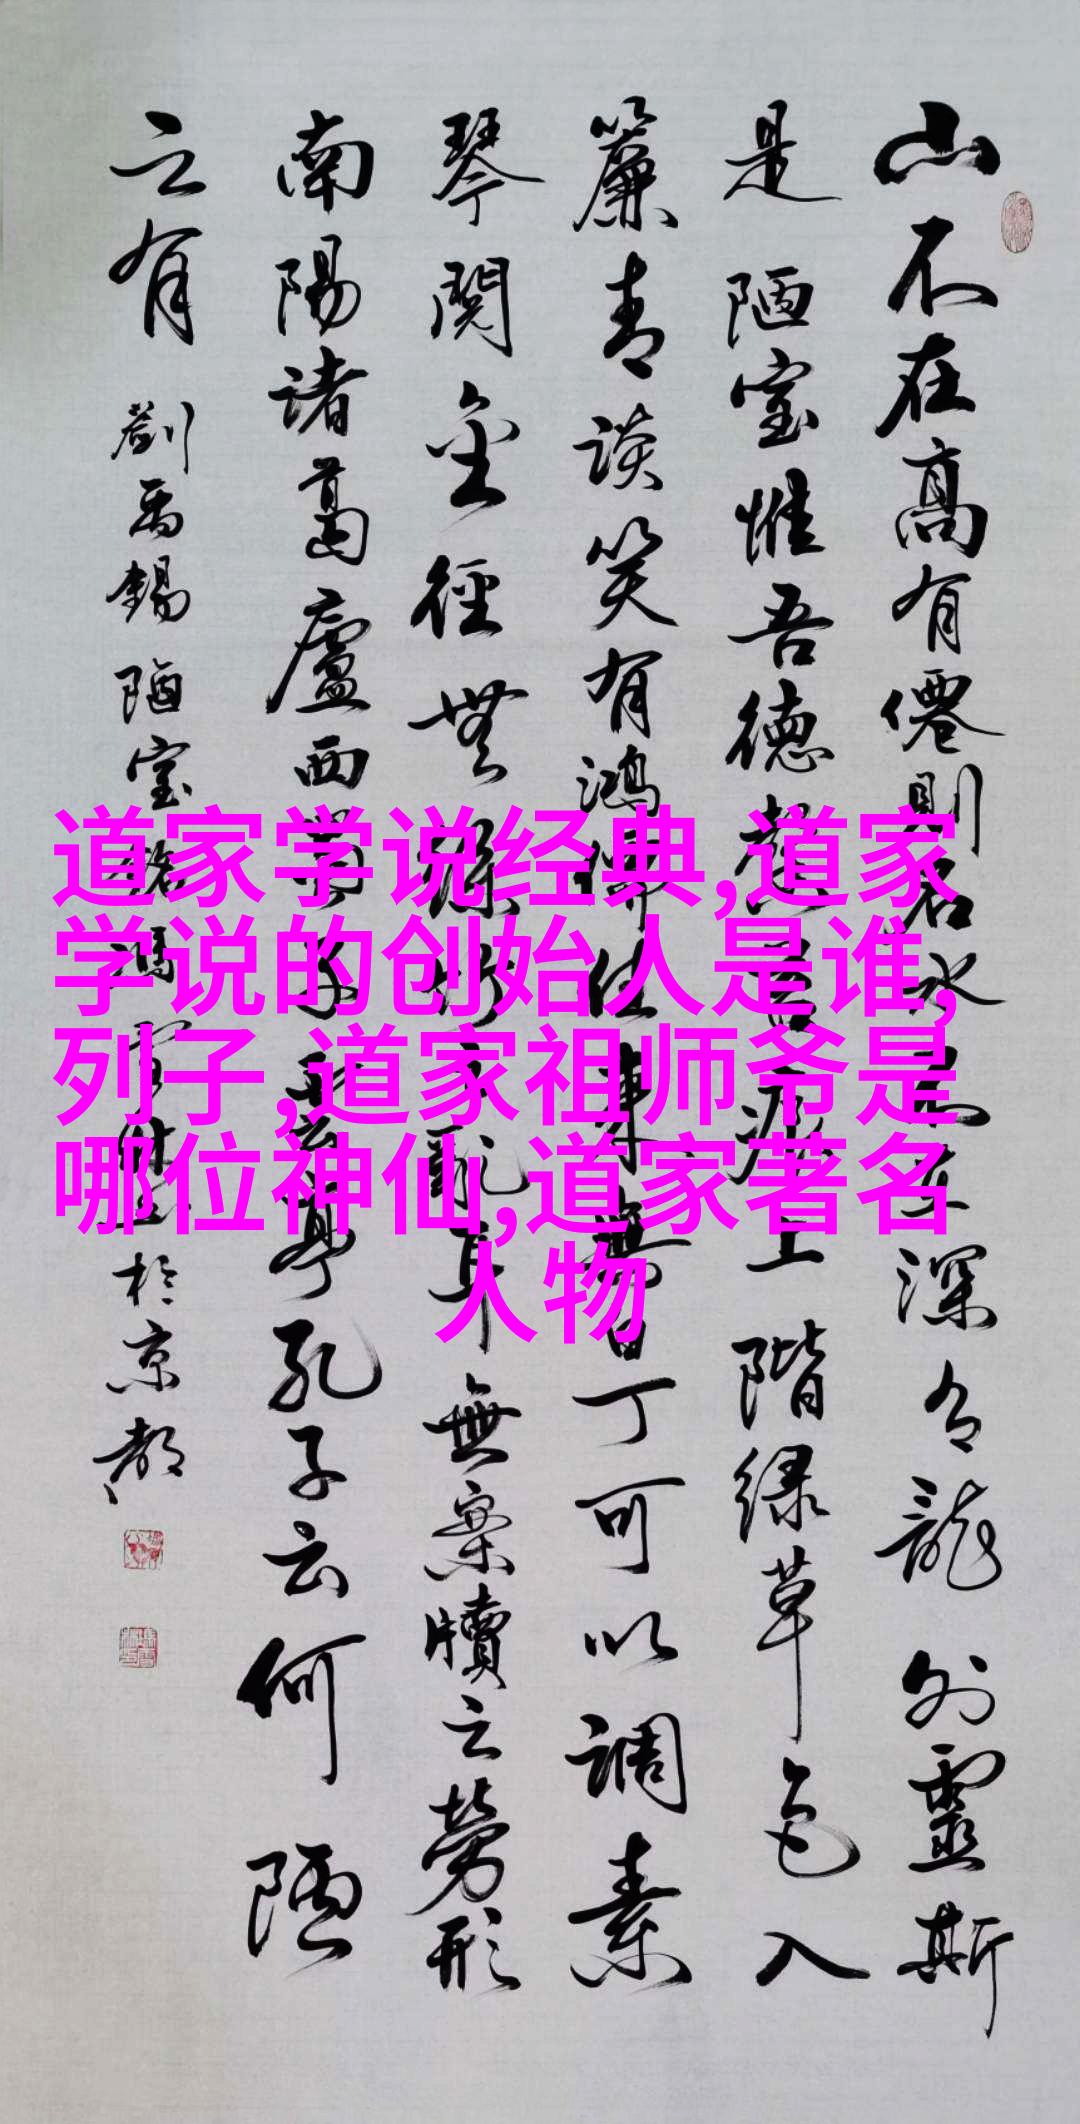 山不在高有僊則名水不在深有龍则靈斯
是陋室惟吾德馨苔痕上階绿草色入
簾青談笑有鴻儒往来無白丁可以調素
琴閱金徑無絲竹之亂耳無案牘之勞形
南陽諸葛廬西蜀子雲亭孔子云何陋
之有 劉禹錫陋室銘馮於京都
道家学说经典,道家
学说的创始人是谁,
列子,道家祖师爷是
哪位神仙,道家著名
人物